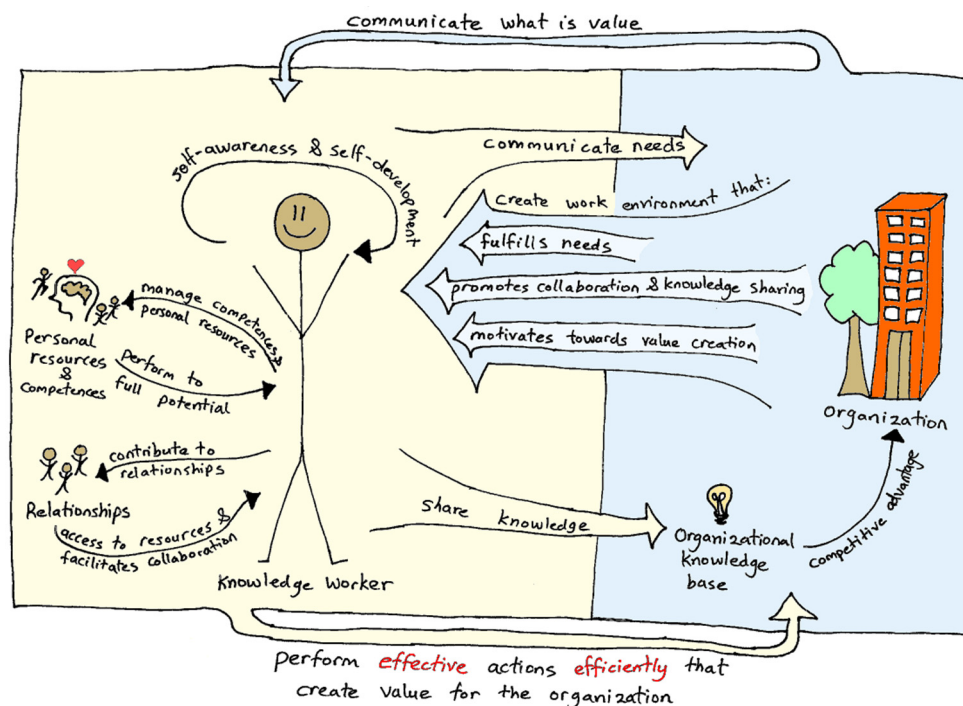 communicate what is value
self-awareness & self-development
communicate needs
create work environment that:
fulfills needs
promotes collaboration & knowledge sharing
motivates towards value creation
manage competences &
personal resources
Personal
resources
&
competences
Perform to
full potential
contribute to
relationships
Relationships
access to resources &
facilitates collaboration
Knowledge Worker
share knowledge
Organizational
knowledge
base
competitive advantage
Organization
perform effective actions efficiently that
create value for the organization